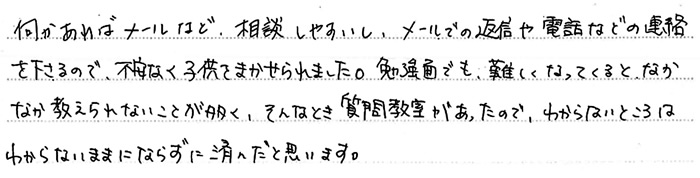 何かあればメールなど、相談しやすいし、メールでの返信や電話などの連絡
を下さるので、不安なく子供をまかせられました。勉強面でも、難しくなってくると、なか
なか教えられないことが多く、そんなとき質問教室があったので、わからないところは
わからないままにならずに済んだと思います。